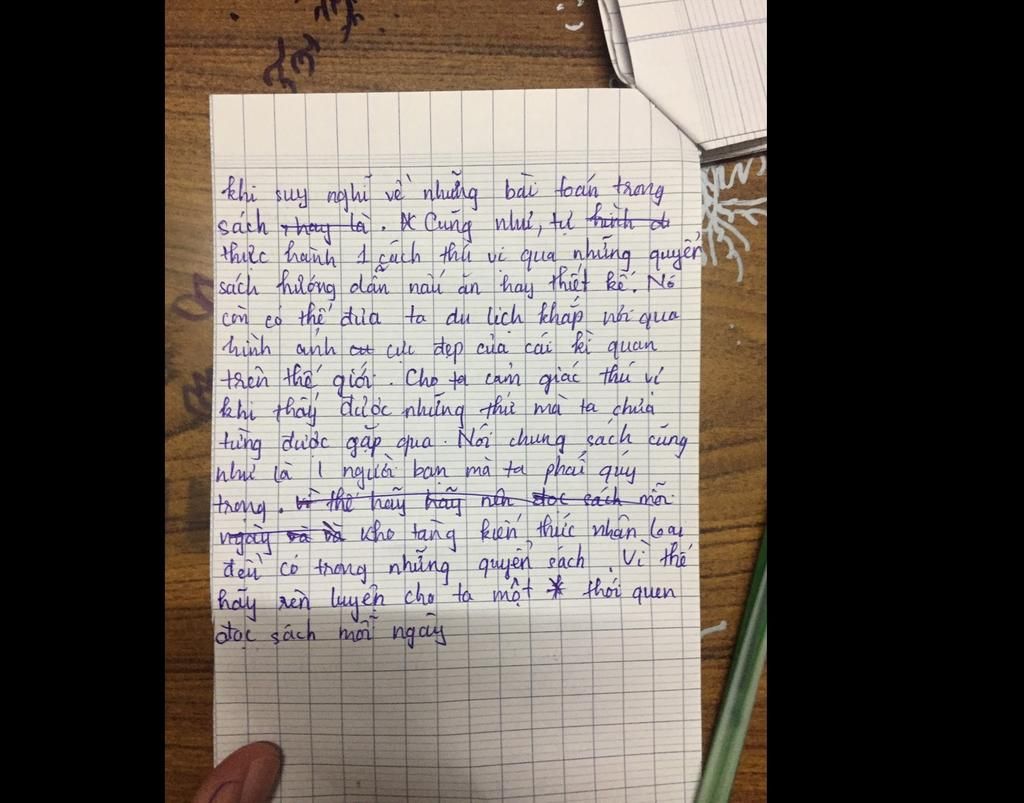 khi suy nghĩ về những bài toán trong
sách, hay là. Cũng như, tự hình du
thực hành 1 cách thú vị qua những quyển
sách hướng dẫn nấu ăn hay thiết kế. Nó
còn có thể đưa ta du lịch khắp nơi qua
hình ảnh cực đẹp của cái kì quan
trên thế giới. Cho ta cảm giác thú vị
khi thấy được những thứ mà ta chưa
từng được gặp qua. Nói chung sách cũng
như là 1 người bạn mà ta phải quý
trọng. vì thế hãy hãy nên đọc sách mỗi
ngày và và kho tàng kiến thức nhân loại
đều có trong những quyển sách. Vì thế
hãy rèn luyện cho ta một thói quen
đọc sách mỗi ngày